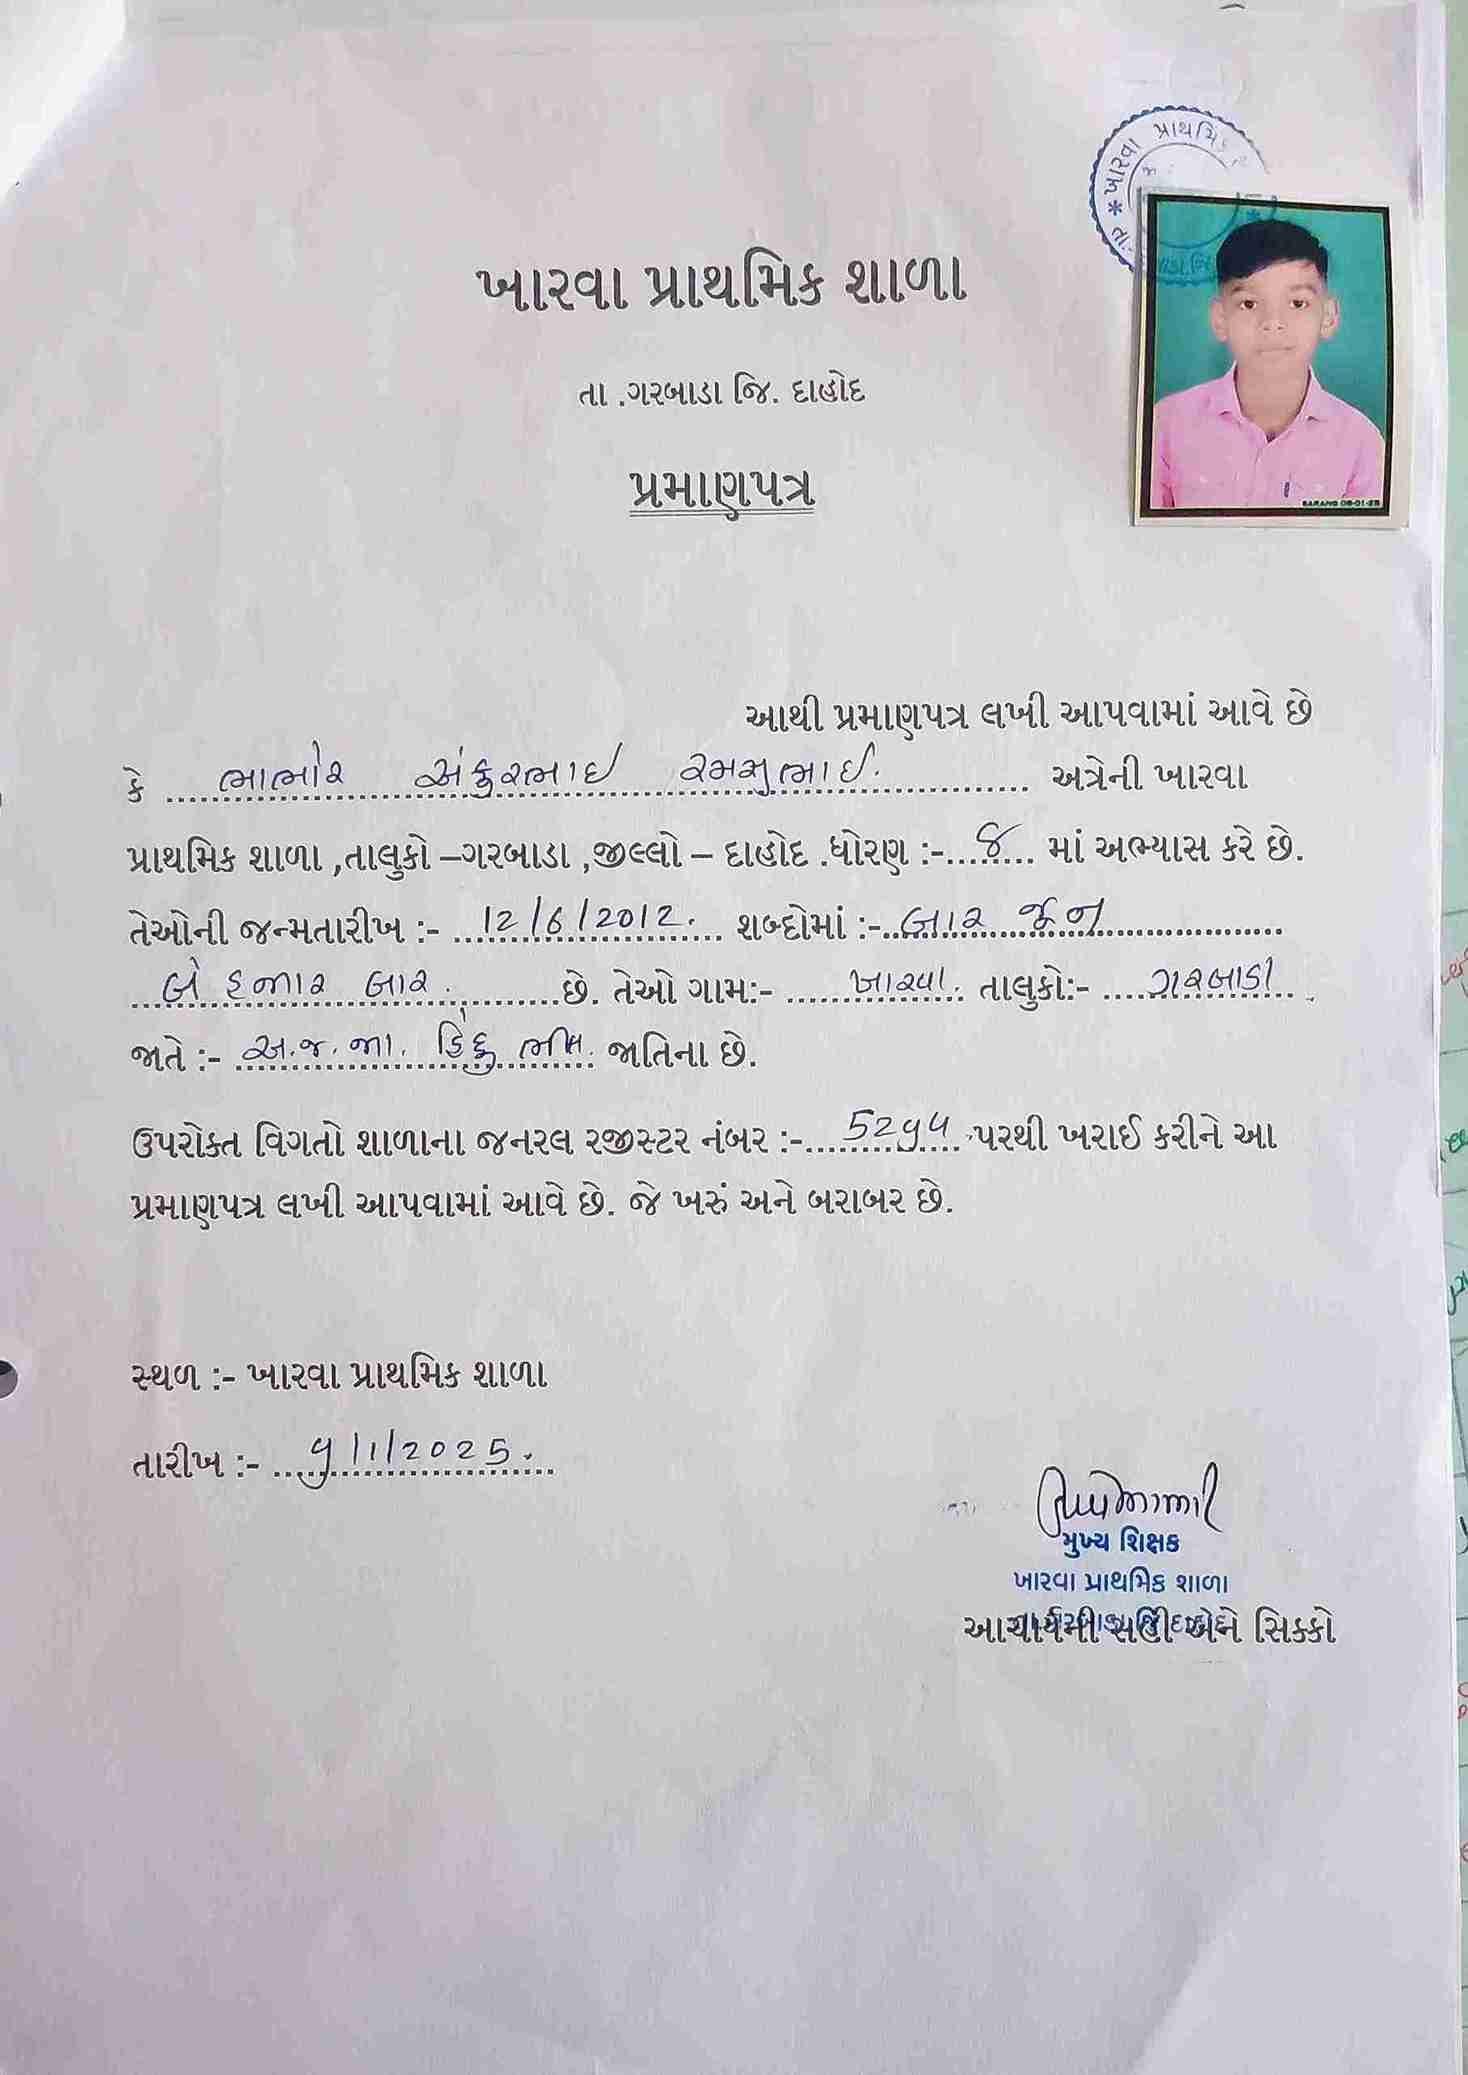 ખારવા પ્રાથમિક
ખારવા પ્રાથમિક શાળા
તા .ગરબાડા જિ. દાહોદ
પ્રમાણપત્ર
SARANG 08-01-25
આથી પ્રમાણપત્ર લખી આપવામાં આવે છે
કે ભાભોર અંકુરભાઇ રમસુભાઇ. અત્રેની ખારવા
પ્રાથમિક શાળા ,તાલુકો –ગરબાડા ,જીલ્લો – દાહોદ .ધોરણ :- ૭ માં અભ્યાસ કરે છે.
તેઓની જન્મતારીખ :- 12/6/2012. શબ્દોમાં :- બાર જૂન
બે હજાર બાર. છે. તેઓ ગામ:- ખારવા. તાલુકો:- ગરબાડા
જાતે :- અ.જ.જા. હિંદુ ભીલ. જાતિના છે.
ઉપરોક્ત વિગતો શાળાના જનરલ રજીસ્ટર નંબર :- 52૧૫ પરથી ખરાઈ કરીને આ
પ્રમાણપત્ર લખી આપવામાં આવે છે. જે ખરું અને બરાબર છે.
સ્થળ :- ખારવા પ્રાથમિક શાળા
તારીખ :- ૧/1/2025.
મુખ્ય શિક્ષક
ખારવા પ્રાથમિક શાળા
આચાર્યની સહી અને સિક્કો